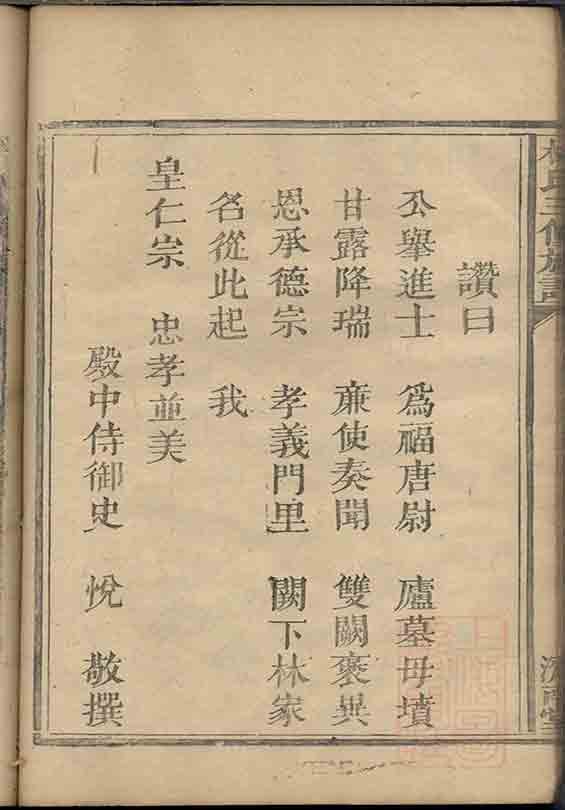 林氏三修族譜
讚曰
公舉進士　爲福唐尉　廬墓母墳
甘露降瑞　亷使奏聞　雙闕褒異
恩承德宗　孝義門里　闕下林家
名從此起　我
皇仁宗　忠孝並美
殿中侍御史　悅　敬撰